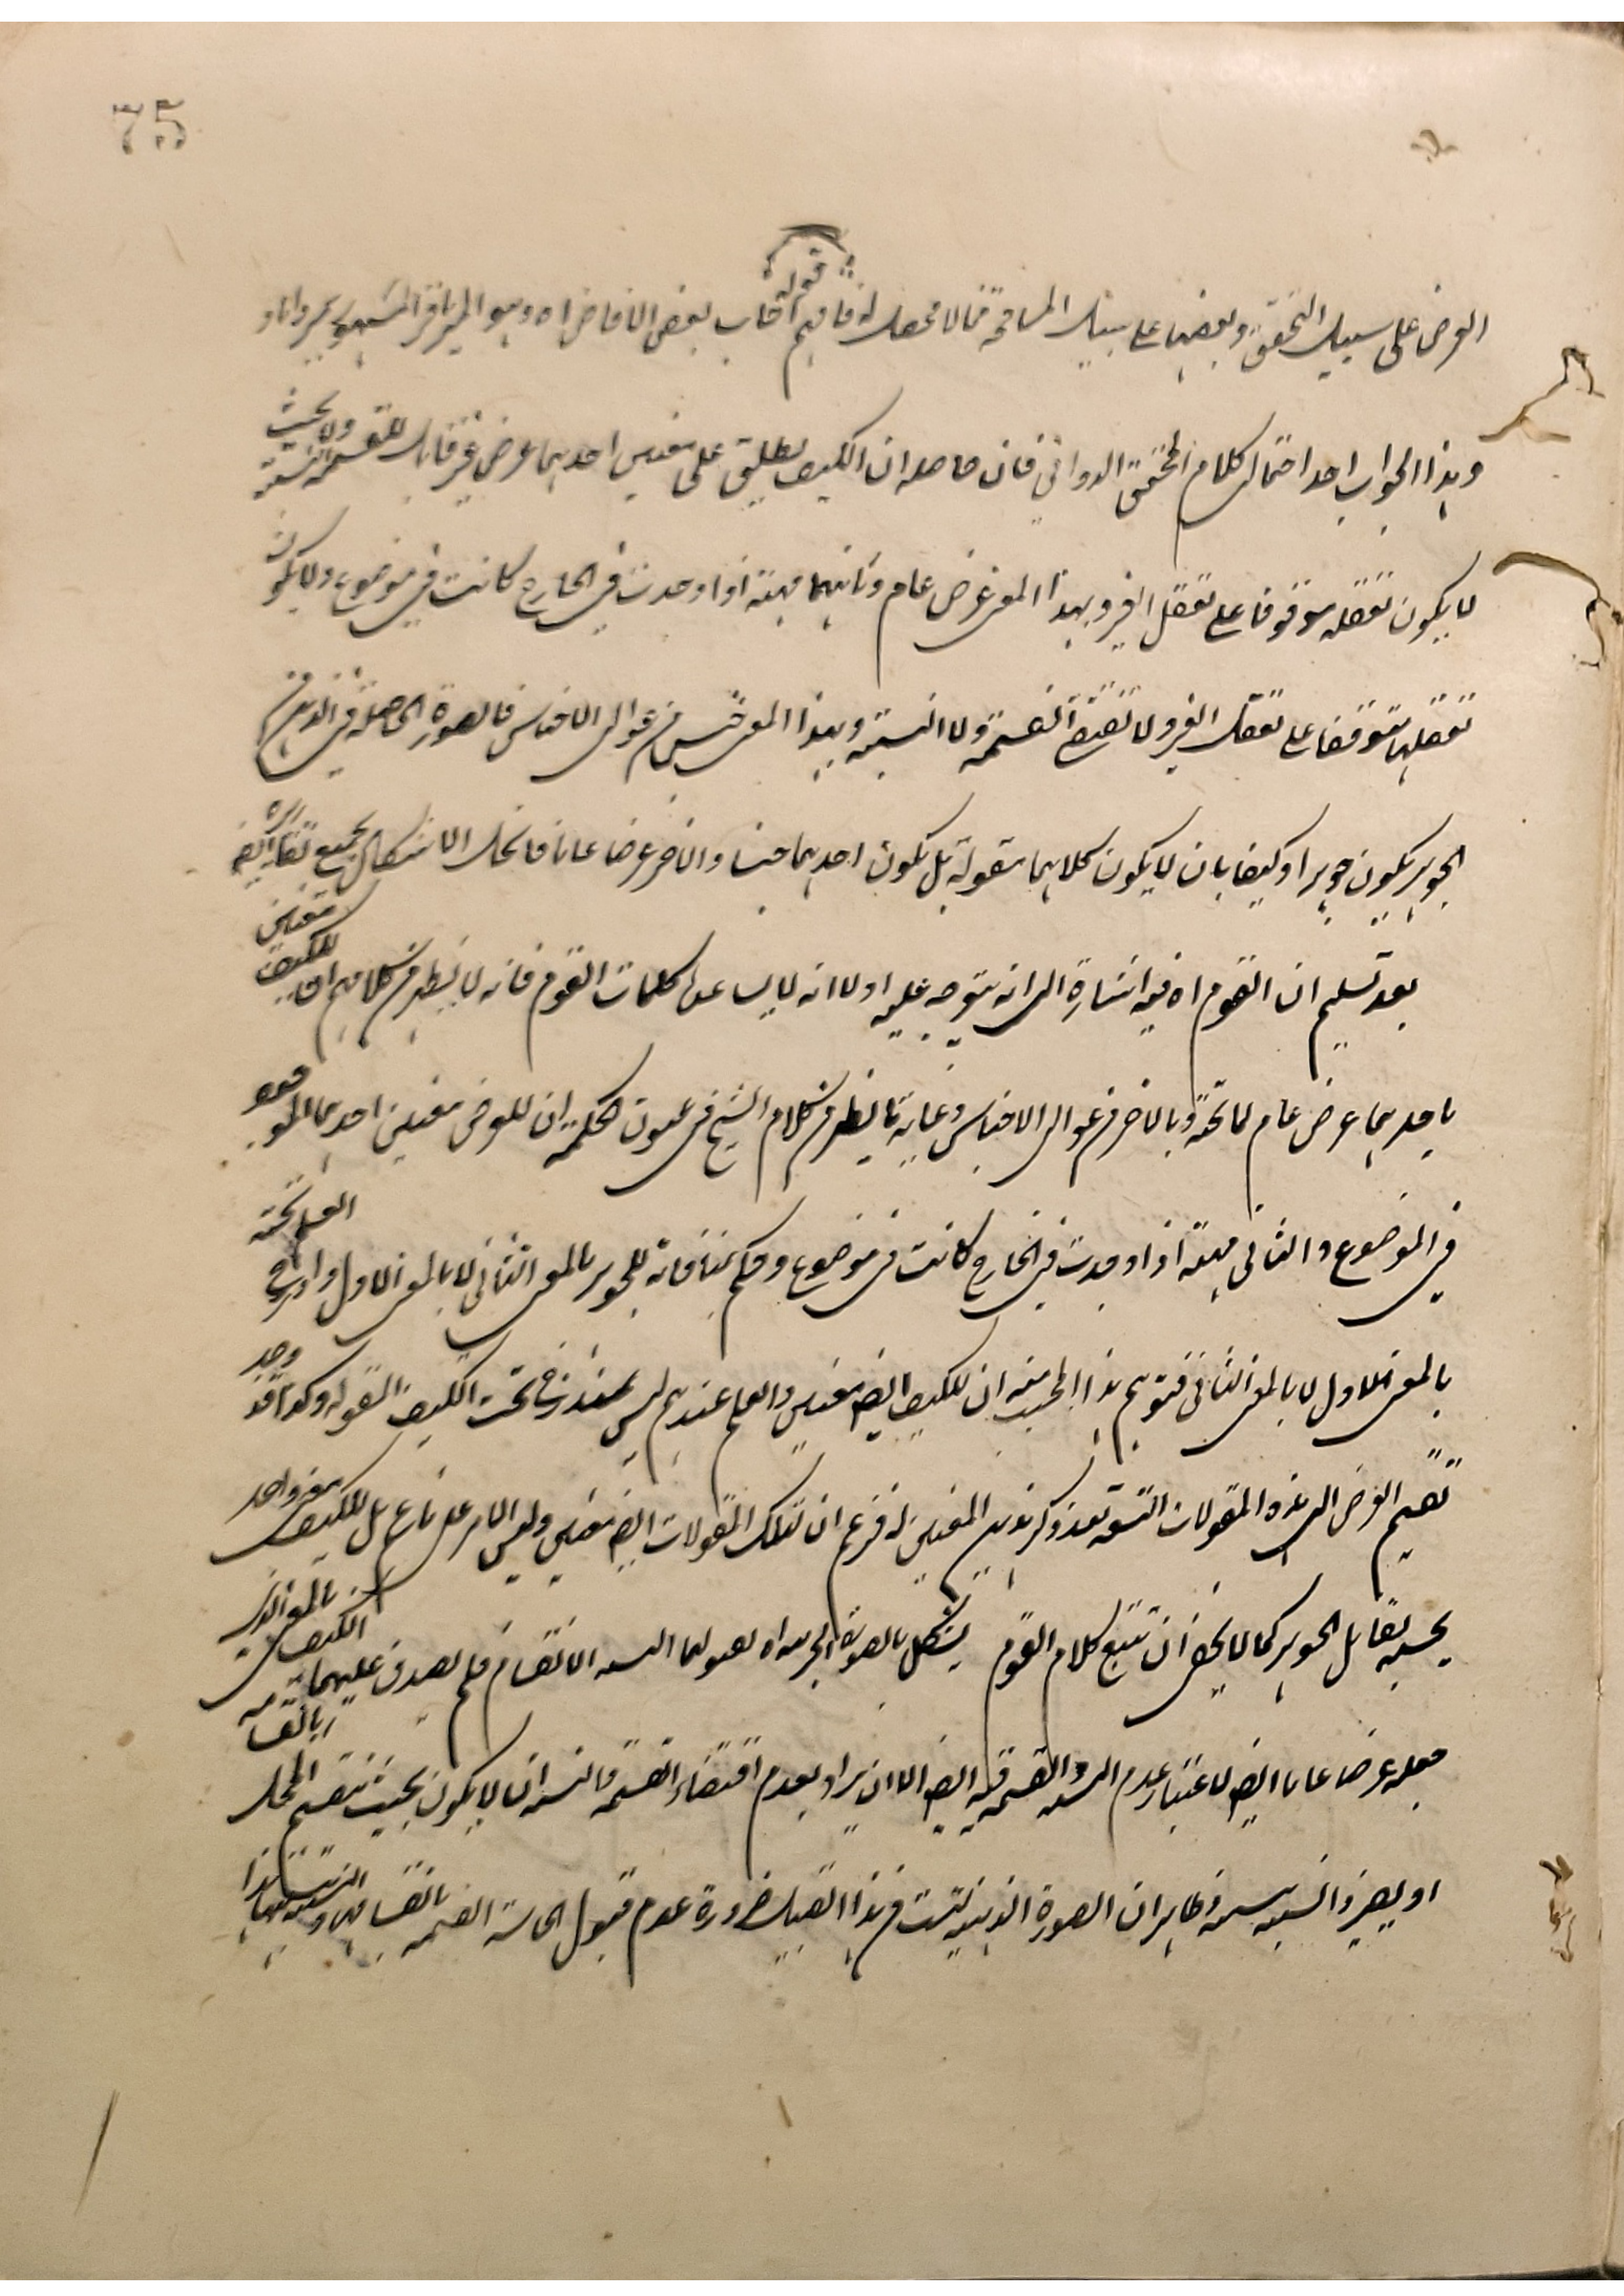 75
العرض على سبيل التحقق وبعضها على سبيل المسامحة مما لا محصل له فافهم قوله اجاب بعض الافاضل اه وهو المير باقر المشهور بمير داماد
وهذا الجواب احد احتمالي كلام المحقق الدواني فان حاصله ان الكيف يطلق على معنيين احدهما عرض غير قابل للقسمة والنسبة بحيث
لا يكون تعقله موقوفا على تعقل الغير وبهذا المعنى عرض عام وثانيهما مهية اذا وجدت في الخارج كانت في موضوع ولا يكون
تعقلها متوقفا على تعقل الغير ولا تقتضي القسمة ولا النسبة وبهذا المعنى جنس من عوالي الاجناس فالصورة الحاصلة في الذهن من
الجوهر يكون جوهرا وكيفا بان لا يكون كلاهما مقولة بل يكون احدهما جنسا والاخر عرضا عاما فانحل الاشكال بجميع تقاريره
بعد تسليم ان القوم اه فيه اشارة الى انه يتوجه عليه اولا انه لا يساعده كلمات القوم فانه لا يظهر من كلامهم ان للكيف معنيين
باحدهما عرض عام لما تحته وبالاخر من عوالي الاجناس وغاية ما يظهر من كلام الشيخ في عيون الحكمة ان للعرض معنيين احدهما الموجود
في الموضوع والثاني مهية اذا وجدت في الخارج كانت في موضوع وحكم بمنافاته للجوهر بالمعنى الثاني لا بالمعنى الاول وادرج العلم تحته
بالمعنى الاول لا بالمعنى الثاني فتوهم هذا المجيب منه ان للكيف ايضا معنيين والعلم عندهم ليس بمندرج تحت الكيف المقولة وكذا قد وجد
تقسيم العرض الى هذه المقولات التسعة بعد ذكر هذين المعنيين له فزعم ان لتلك المقولات ايضا معنيين وليس الامر على ما زعم بل للكيف معنى واحد
بحسبه يقابل الجوهر كما لا يخفى ان تتبع كلام القوم يشكل بالصورة الجرمية اه لقبولها القسمة الانقسام فلم يصدق عليها الكيف بالمعنى الذي
جعله عرضا عاما ايضا لاعتبار عدم النسبة والقسمة فيه ايضا الا ان يراد بعدم اقتضاء القسمة والنسبة ان لا يكون بحيث ينقسم المحل
او يصير ذا نسبة وظاهر ان الصورة الذهنية ليست من هذا القبيل ضرورة عدم قبول الحاسة القسمة بانقسامها